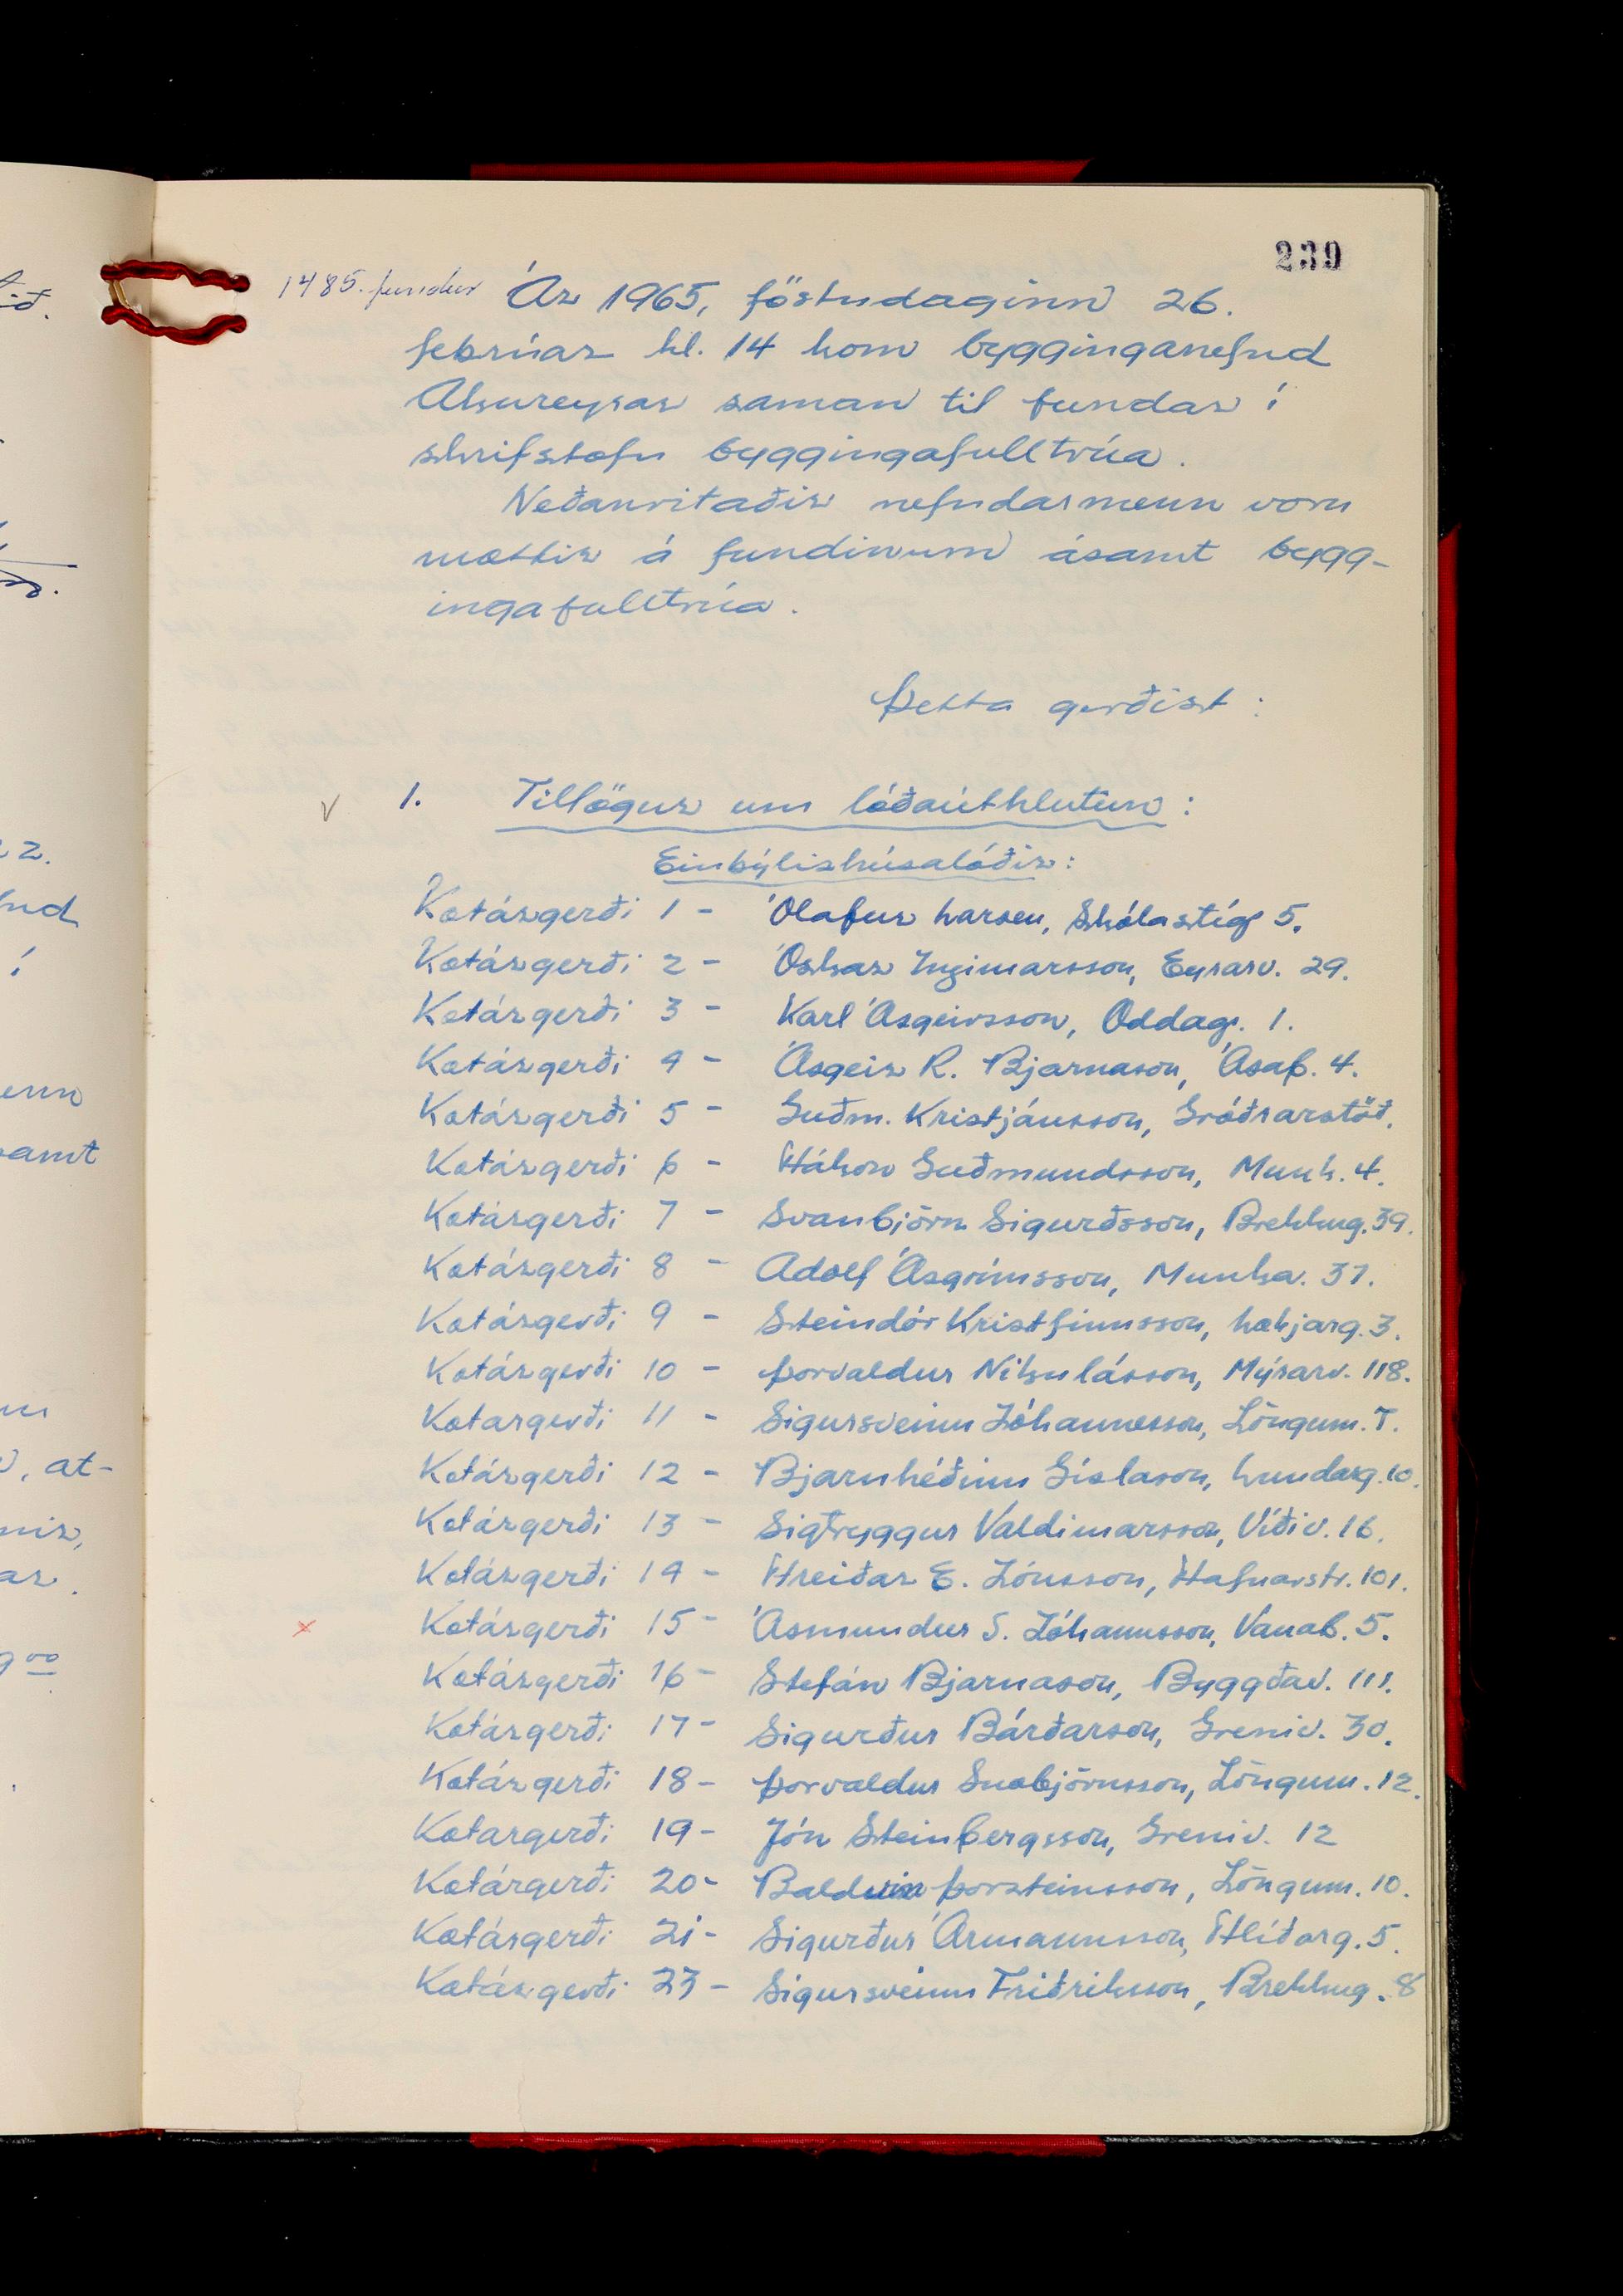 239
1485. fundur
Ár 1965, föstudaginn 26.
febrúar kl. 14 kom bygginganefnd
Akureyrar saman til fundar í
skrifstofu byggingafulltrúa.
Neðanritaðir nefndarmenn voru
mættir á fundinum ásamt bygg-
ingafulltrúa.
Þetta gerðist:
V 1. Tillögur um lóðaúthlutun:
Einbýlishúsalóðir:
Kotárgerði 1 - Ólafur Larsen, Skólastíg 5.
Kotárgerði 2 - Óskar Ingimarsson, Eyrarv. 29.
Kotárgerði 3 - Karl Ásgeirsson, Oddag. 1.
Kotárgerði 4 - Ásgeir R. Bjarnason, Ásab. 4.
Kotárgerði 5 - Guðm. Kristjánsson, Gróðrarstöð.
Kotárgerði 6 - Hákon Guðmundsson, Munk. 4.
Kotárgerði 7 - Svanbjörn Sigurðsson, Brekkug. 39.
Kotárgerði 8 - Adolf Ásgrímsson, Munka. 37.
Kotárgerði 9 - Steindór Kristfinnsson, Lækjarg. 3.
Kotárgerði 10 - Þorvaldur Nikulásson, Mýrarv. 118.
Kotargerði 11 - Sigursveinn Jóhannesson, Löngum. 7.
Kotárgerði 12 - Bjarnhéðinn Gíslason, Lundarg. 10.
Kotárgerði 13 - Sigtryggur Valdimarsson, Víðiv. 16.
Kotárgerði 14 - Hreiðar E. Jónsson, Hafnarstr. 101.
x Kotárgerði 15 - Ásmundur S. Jóhannsson, Vanab. 5.
Kotárgerði 16 - Stefán Bjarnason, Byggðav. 111.
Kotárgerði 17 - Sigurður Bárðarson, Greniv. 30.
Kotárgerði 18 - Þorvaldur Snæbjörnsson, Löngum. 12.
Kotargerði 19 - Jón Steinbergsson, Greniv. 12
Kotárgerði 20 - Baldvin Þorsteinsson, Löngum. 10.
Kotárgerði 21 - Sigurður Ármannsson, Hlíðarg. 5.
Kotárgerði 23 - Sigursveinn Friðriksson, Brekkug. 8